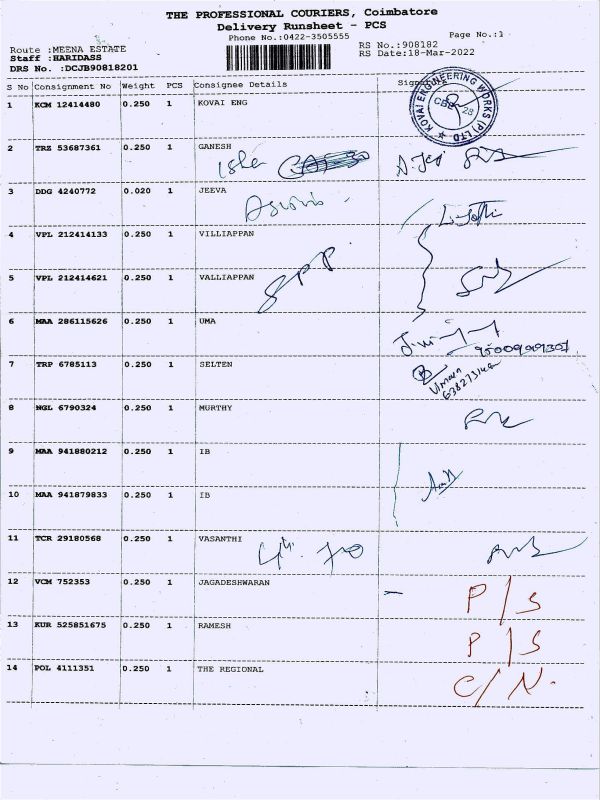 THE PROFESSIONAL COURIERS, Coimbatore
Delivery Runsheet - PCS
Phone No.:0422-3505555
Page No.:1
Route :MEENA ESTATE
Staff :HARIDASS
DRS No. :DCJB90818201
RS No.:908182
RS Date:18-Mar-2022
S No Consignment No Weight PCS Consignee Details Signature
1 KCM 12414480 0.250 1 KOVAI ENG
KOVAI ENGINEERING WORKS (P) LTD
CBE 28
2 TRZ 53687361 0.250 1 GANESH
3 DDG 4240772 0.020 1 JEEVA
4 VPL 212414133 0.250 1 VILLIAPPAN
5 VPL 212414621 0.250 1 VALLIAPPAN
6 MAA 286115626 0.250 1 UMA
7 TRP 6785113 0.250 1 SELTEN
8 NGL 6790324 0.250 1 MURTHY
9 MAA 941880212 0.250 1 IB
10 MAA 941879833 0.250 1 IB
11 TCR 29180568 0.250 1 VASANTHI
12 VCM 752353 0.250 1 JAGADESHWARAN P/S
13 KUR 525851675 0.250 1 RAMESH P/S
14 POL 4111351 0.250 1 THE REGIONAL C/N.